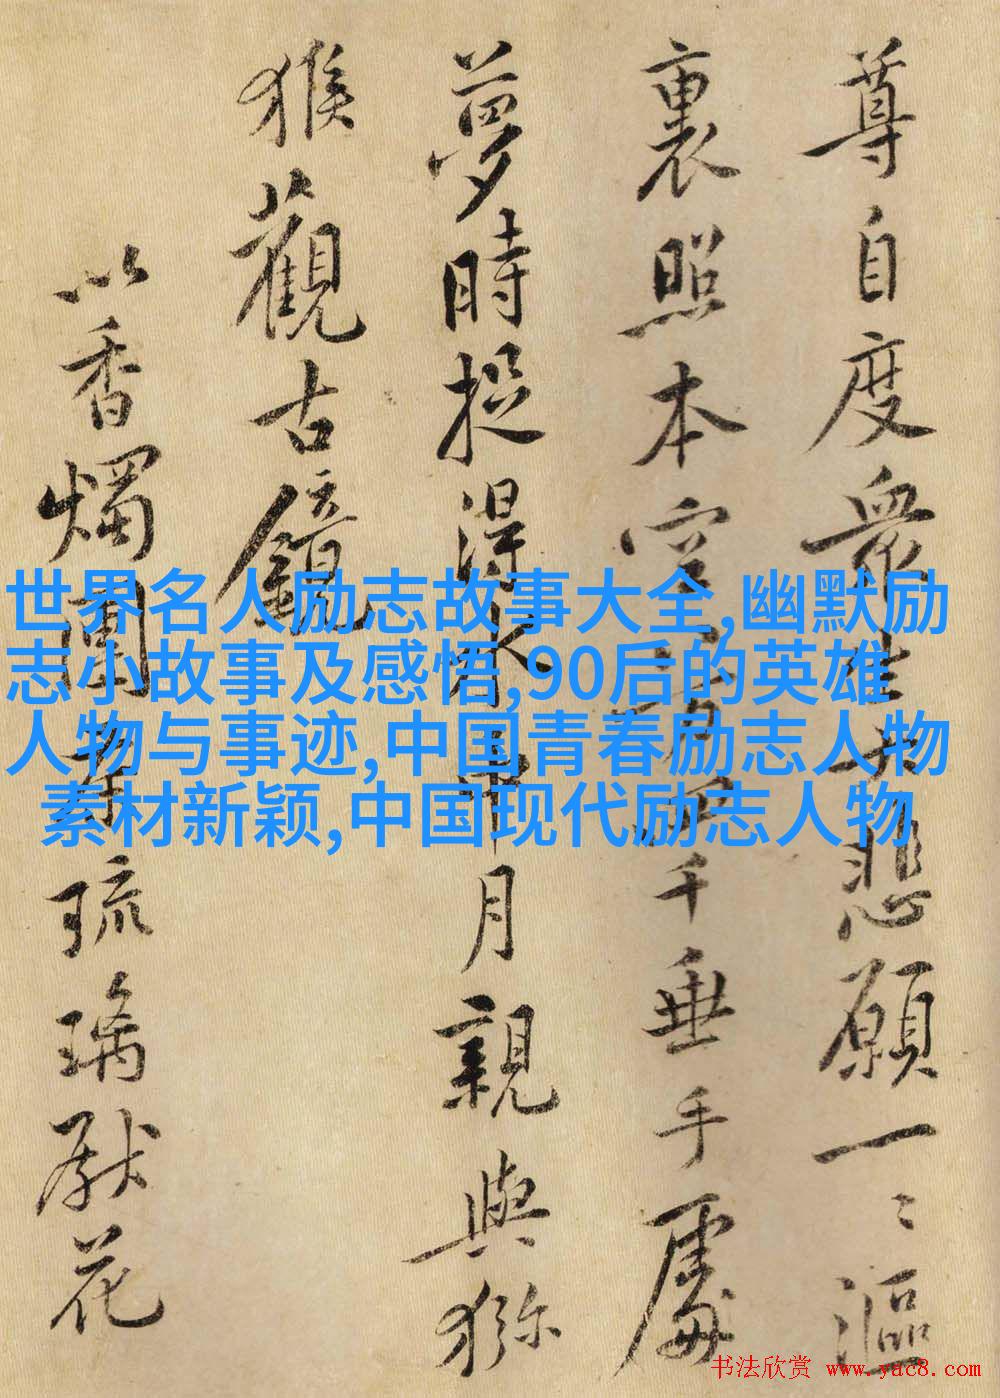 尊自度衆生大悲願一〻漚
裏照本空千垂手處
夢時捉得水中月親與獼
猴觀古鏡
以香燭團茶琉璃獻花
世界名人励志故事大全,幽默励
志小故事及感悟,90后的英雄
人物与事迹,中国青春励志人物
素材新颖,中国现代励志人物
书法欣赏 www.yac8.com